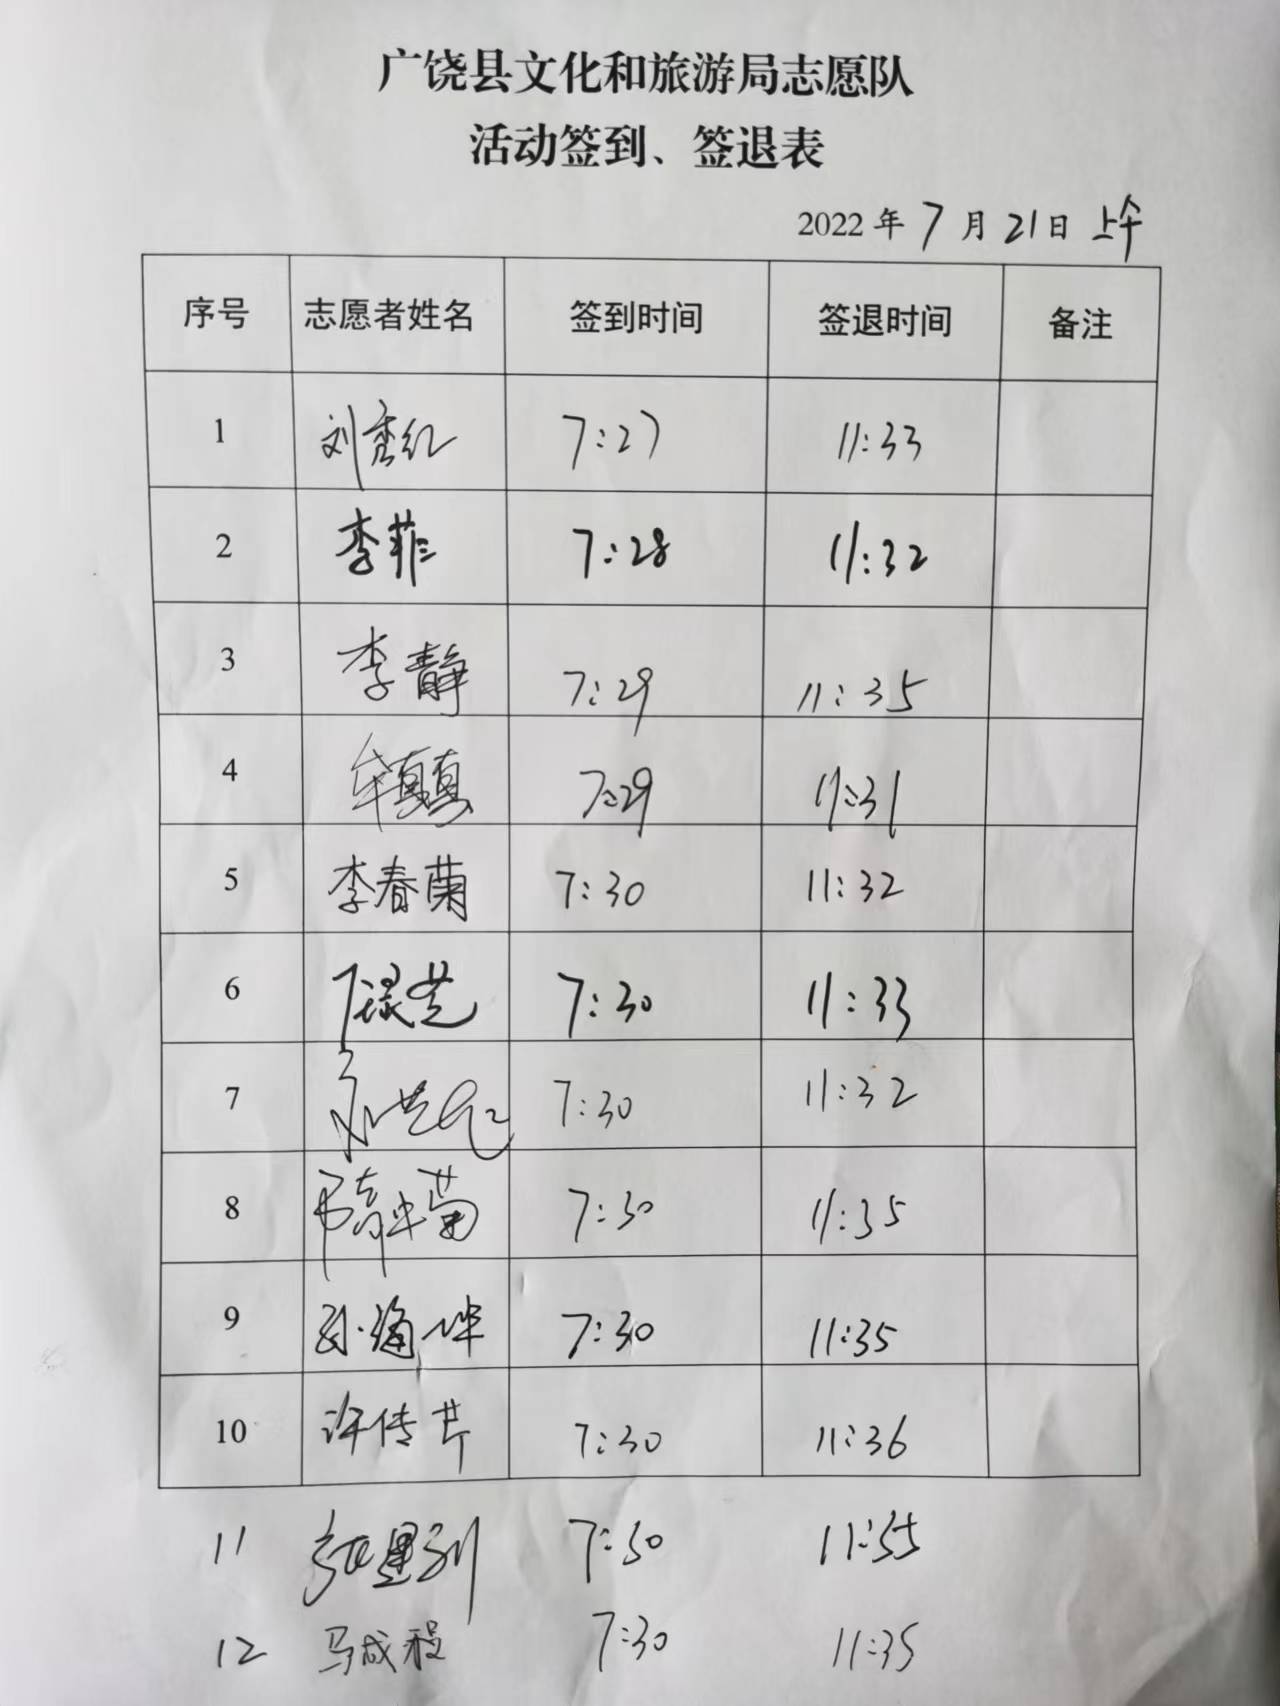 广饶县文化和旅游局志愿队
活动签到、签退表
2022年7月21日 上午
序号 志愿者姓名 签到时间 签退时间 备注
1 刘秀红 7:27 11:33
2 李菲 7:28 11:32
3 李静 7:29 11:35
4 牟真真 7:29 11:31
5 李春菊 7:30 11:32
6 7:30 11:33
7 7:30 11:32
8 7:30 11:35
9 7:30 11:35
10 许传芹 7:30 11:36
11 7:30 11:35
12 马成程 7:30 11:35